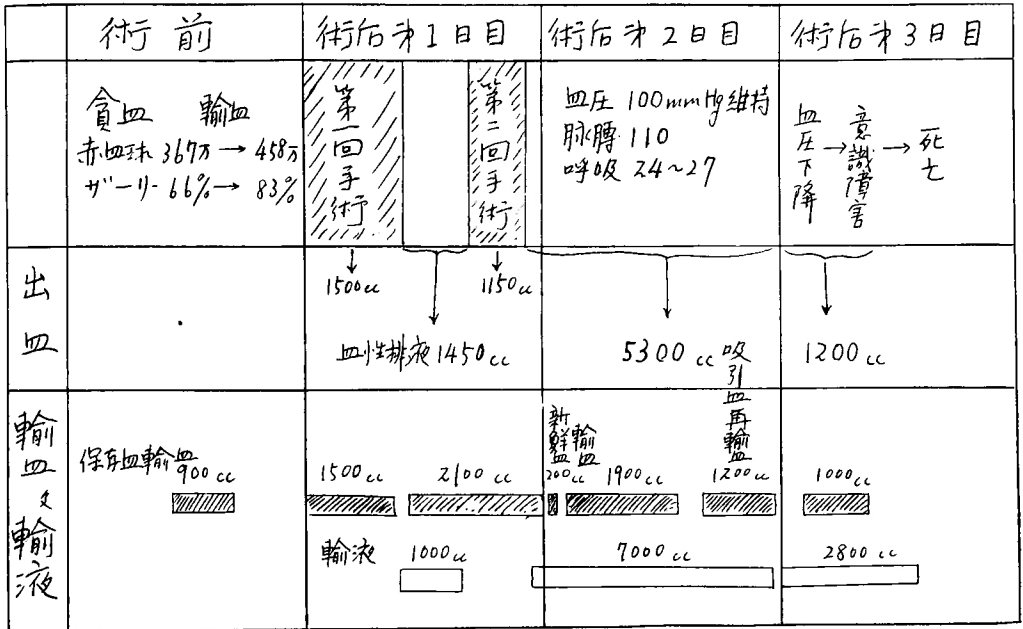 術前
術后才1日目
術后才2日目
術后才3日目
貧血 輸血
赤血球 367万 → 458万
ザーリー 66% → 83%
第一回手術
第二回手術
血圧 100mmHg維持
脉膊 110
呼吸 24~27
血圧下降 → 意識障害 → 死亡
出血
1500cc
1150cc
血性排液 1450cc
5300cc
1200cc
輸血及輸液
保存血輸血
900cc
1500cc
2100cc
新鮮血輸血
200cc
1900cc
吸引血再輸血
1200cc
1000cc
輸液
1000cc
7000cc
2800cc